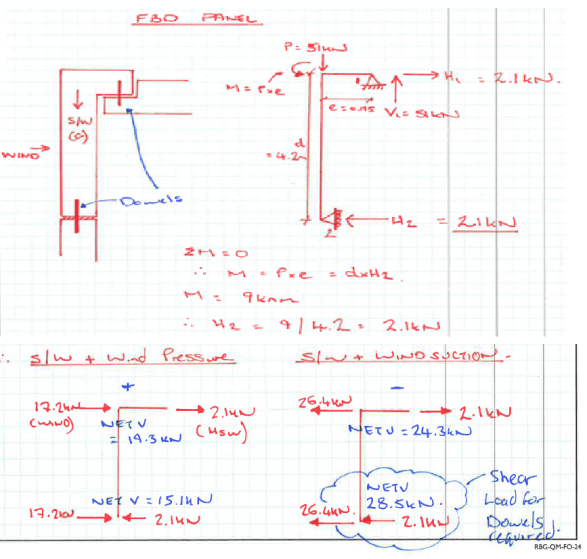 FBD PANEL
P = 51kN
M = Pxe
H₁ = 2.1kN.
e = 0.175
V₁ = 51kN
S/W
(G)
WIND
d
= 4.2m
Dowels
H₂ = 2.1kN
2
ΣM = 0
∴ M = Pxe = dxH₂.
M = 9kNm
∴ H₂ = 9/4.2 = 2.1kN
∴ S/W + Wind Pressure
S/W + WIND SUCTION -
+
-
17.2kN
(WIND)
2.1kN
(HSW)
NET V
= 19.3kN
26.4kN
2.1kN
NET V = 24.3kN
NET V = 15.1kN
17.2kN
2.1kN
NET V
28.5kN.
26.4kN
2.1kN
Shear
Load for
Dowels
required.
RBG-QM-FO-24